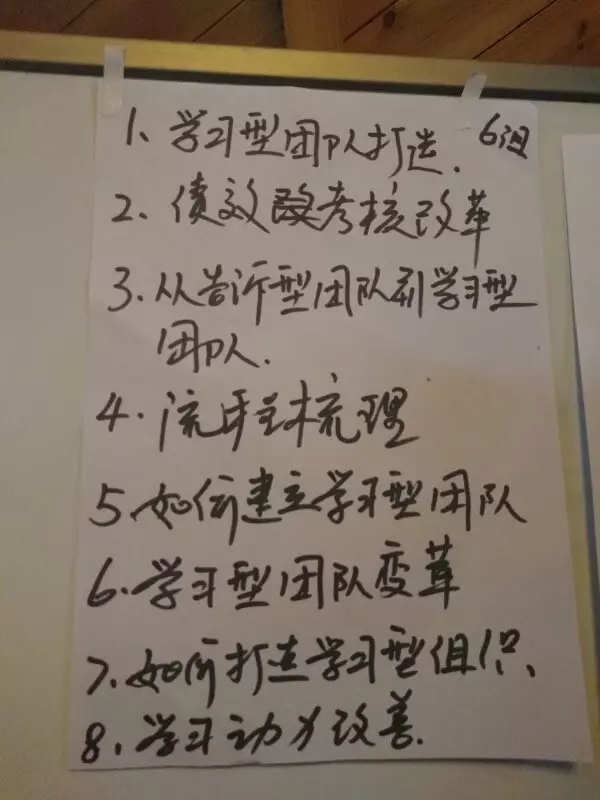 1、学习型团队打造. 6组
2、债效改考核改革
3.从告诉型团队到学习型
团队.
4.流程梳理
5 如何建立学习型团队
6.学习型团队变革
7.如何打造学习型组织、
8、学习动力改善.